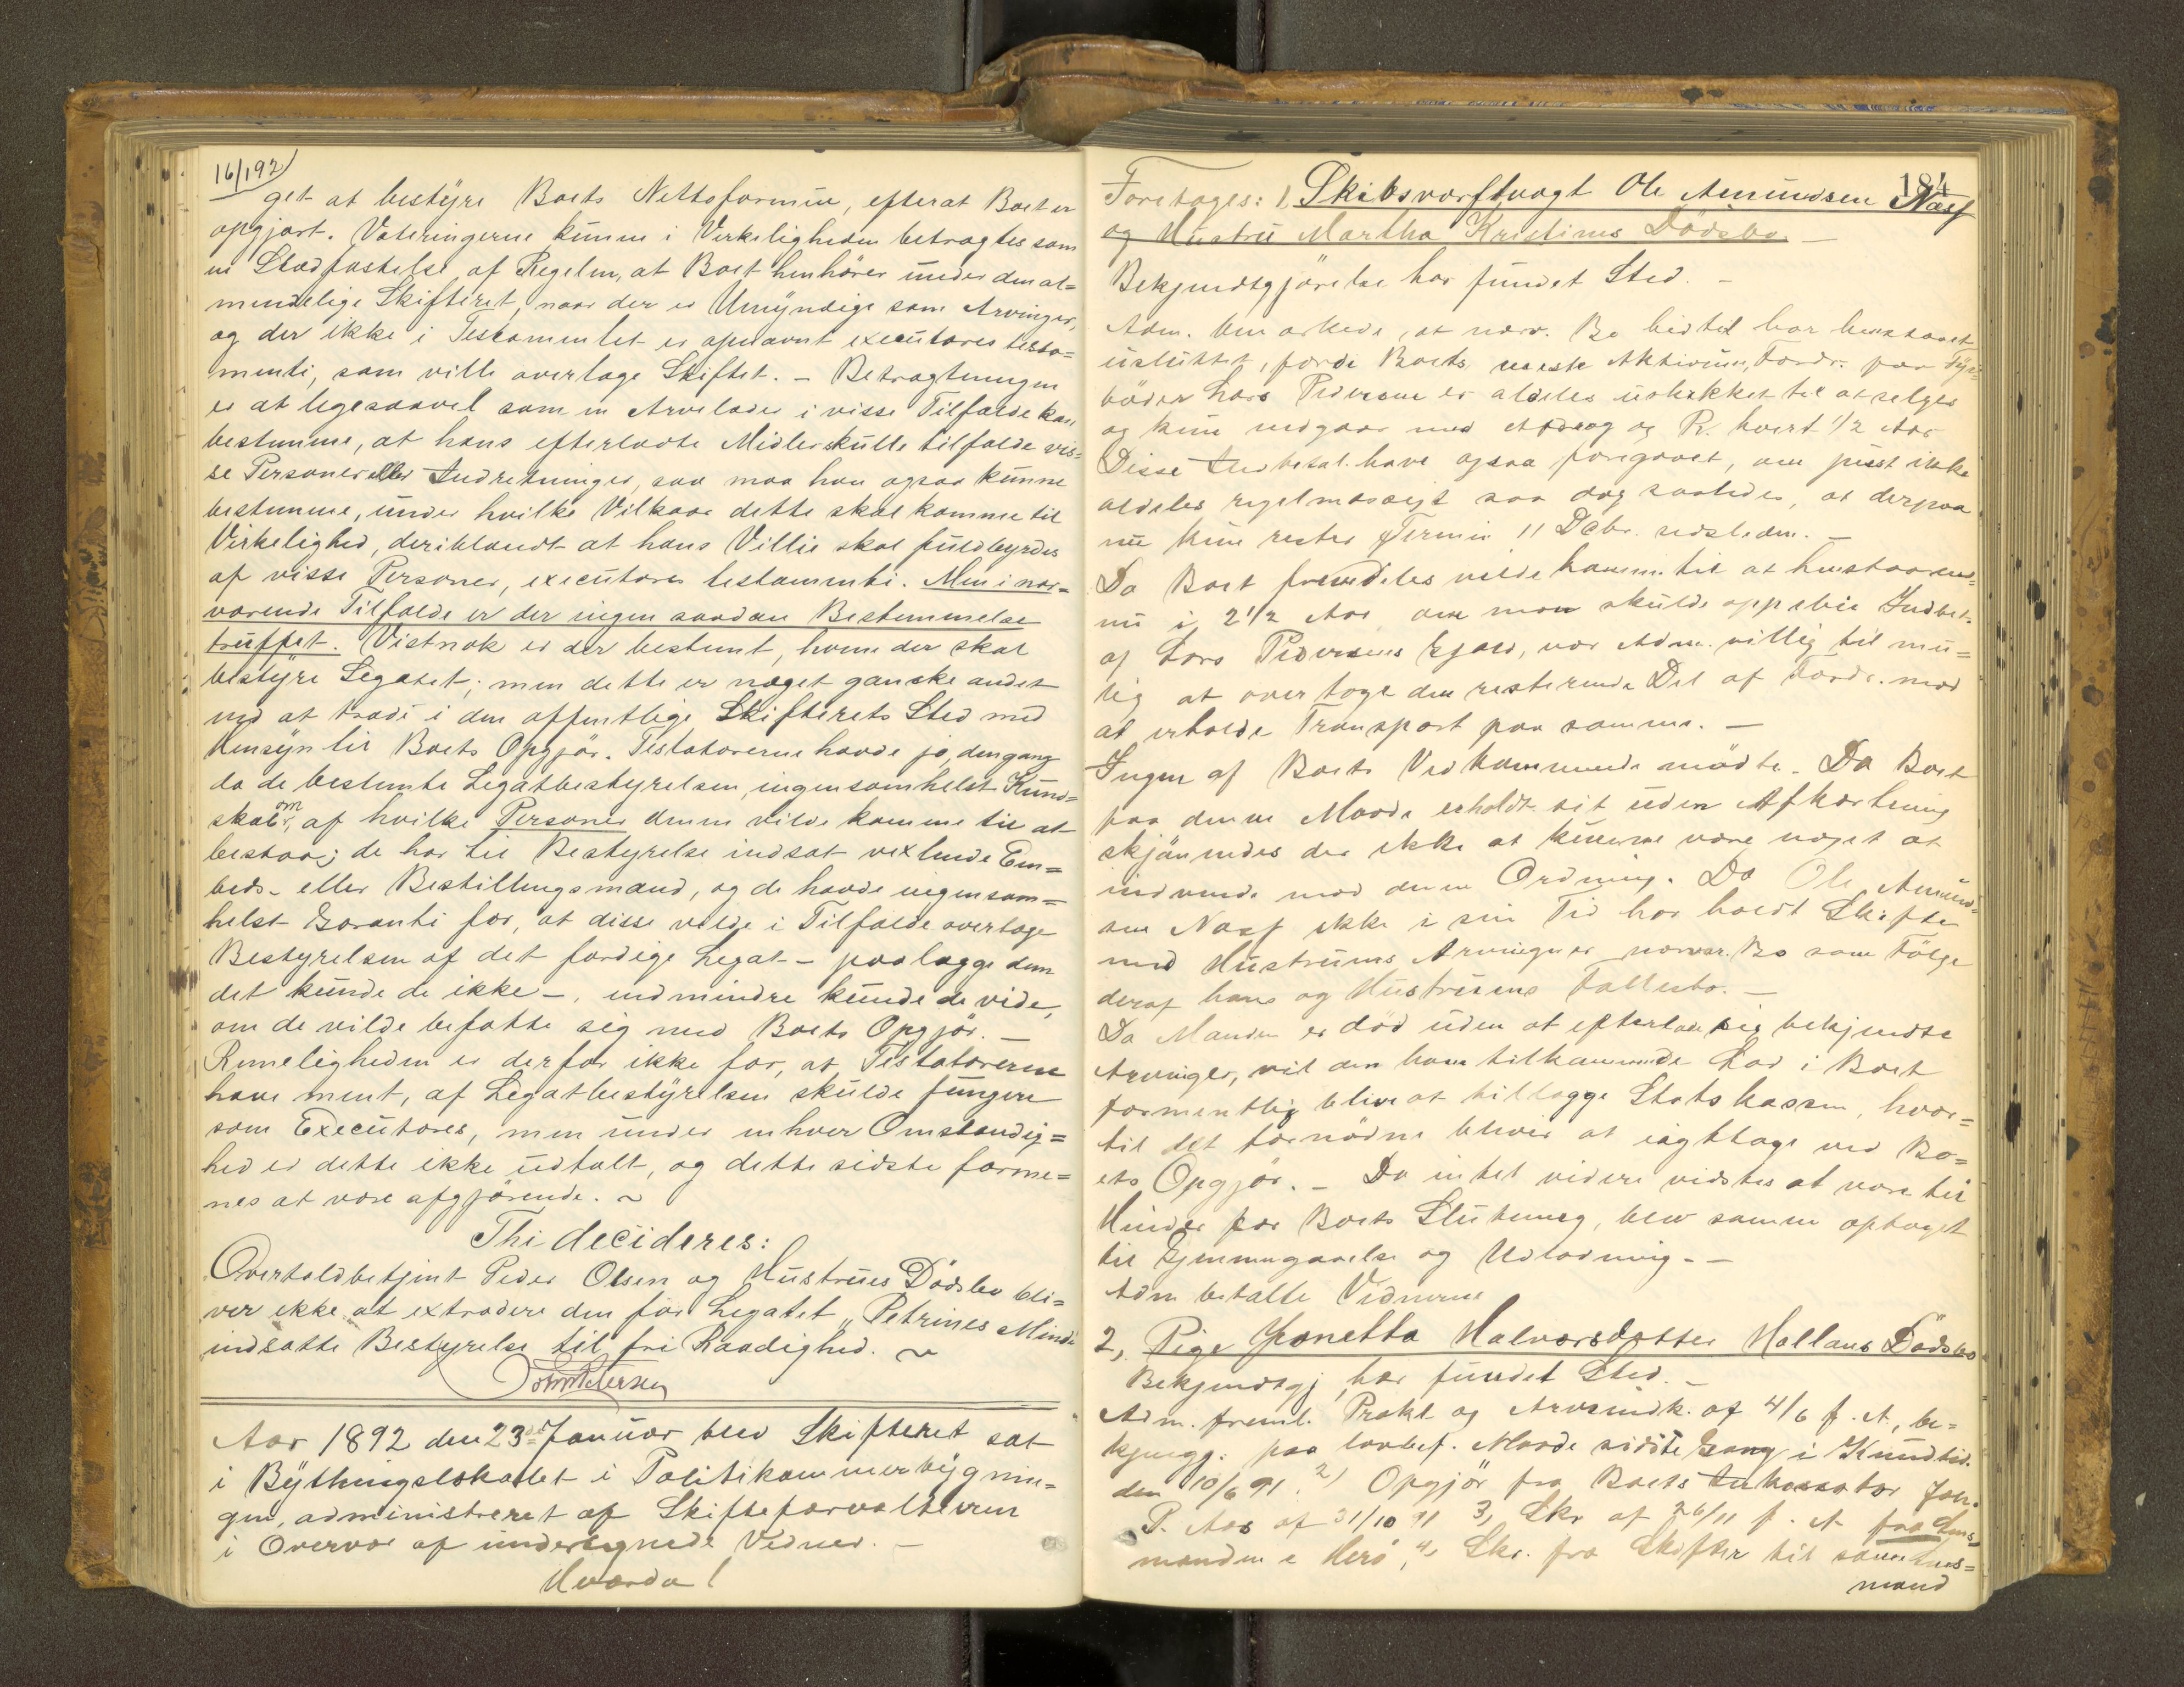 16/1 92
get at bestyre Boets Nettoformue, efterat Boet er
opgjort. Voteringerne kunne i Virkeligheden betragtes som
en Stadfæstelse af Regelen, at Boet henhører under den al=
mindelige Skifteret, naar der er Umyndige som Arvinger,
og der ikke i Testamentet er opnævnt executores testa=
menti, som ville overtage Skiftet. – Betragtningen
er at ligesaavel som en Arvelader i visse Tilfælde kan
bestemme, at hans efterladte Midler skulle tilfalde vis=
se Personer eller Indretninger, saa maa han ogsaa kunne
bestemme, under hvilke Vilkaar dette skal komme til
Virkelighed, deriblandt at hans Villie skal fuldbyrdes
af visse Personer, executores testamenti. Men i nær=
værende Tilfælde er der ingen saadan Bestemmelse
truffet. Vistnok er der bestemt, hvem der skal
bestyre Legatet; men dette er noget ganske andet
end at træde i den offentlige Skifterets Sted med
Hensyn til Boets Opgjør. Testatorerne havde jo, dengang
da de bestemte Legatbestyrelsen, ingensomhelst Kund=
skab om, af hvilke Personer denne vilde komme til at
bestaa; de har til Bestyrelse indsat vexlende Em=
beds- eller Bestillingsmænd, og de havde ingensom=
helst Garanti for, at disse vilde i Tilfælde overtage
Bestyrelsen af det færdige Legat – paalægge dem
det kunde de ikke –, endmindre kunde de vide,
om de vilde befatte sig med Boets Opgjør. –
Rimeligheden er derfor ikke for, at Testatorerne
have ment, at Legatbestyrelsen skulde fungere
som Executores, men under enhver Omstændig=
hed er dette ikke udtalt, og dette sidste forme=
nes at være afgjørende. ~
Thi decideres:
Overtoldbetjent Peder Olsen og Hustrues Dødsbo bli=
ver ikke at extradere den for Legatet „Petrines Minde
indsatte Bestyrelse til fri Raadighed. ~
Aar 1892 den 23de Januar blev Skifteret sat
i Bythingslokalet i Politikammerbygnin=
gen, administreret af Skifteforvalteren
i Overvær af undertegnede Vidner. –
Hvorda!
184
Foretages: 1, Skibsværftvagt Ole Amundsen Næss
og Hustru Martha Kristines Dødsbo. –
Bekjendtgjørelse har fundet Sted. –
Adm. bemærkede, at nærv. Bo hidtil har henstaaet
usluttet, fordi Boets eneste Aktivum, Fordr. paa
Lars Pedersen er aldeles uskikket til at selges
og kun nedgaar med Afdrag og R. hvert 1/2 Aar
Disse Indbetal. have ogsaa foregaaet, om just ikke
aldeles regelmæssigt saa dog saaledes, at derpaa
nu kun rester Termin 11 Dcbr. sidstleden. –
Da Boet fremdeles vilde komme til at henstaa end=
nu i 2 1/2 Aar, om man skulde oppebie Indbet.
af Lars Pedersens Gjæld, var Adm. villig til mu=
lig at overtage den resterende Del af Fordr. mod
at erholde Transport paa samme. –
Ingen af Boets Vedkommende mødte. Da Boet
paa denne Maade erholdt sit uden Afkortning
skjønnedes der ikke at kunne være noget at
indvende mod denne Ordning. Da Ole Amund=
sen Næss ikke i sin Tid har holdt Skifte
med Hustruens Arvinger er nærvær. Bo som Følge
deraf hans og Hustruens Fællesbo. –
Da Manden er død uden at efterlade sig bekjendte
Arvinger, vil den ham tilkommende Lod i Boet
formentlig blive at tillægge Statskassen, hvor=
til det fornødne bliver at iagttage ved Bo=
ets Opgjør. – Da intet videre vidstes at være til
Hinder for Boets Slutning, blev samme optaget
til Gjennemgaaelse og Udlodning. –
Adm betalte Vidnerne
2, Pige Jonetta Halvorsdatter Hollans Dødsbo
Bekjendtgj har fundet Sted. –
Adm. freml. Prokl. og Arveindk. af 4/6 f. A., be=
kjengj. paa lovbef. Maade sidste Gang i Kundtid.
den 10/6 91. 2) Opgjør fra Boets Inkassator Joh.
P. Aas af 31/10 91 3, Skr af 26/11 f. A fra Lens
manden i Herø, 4, Skr. fra Skiftet til samme Lens=
mand